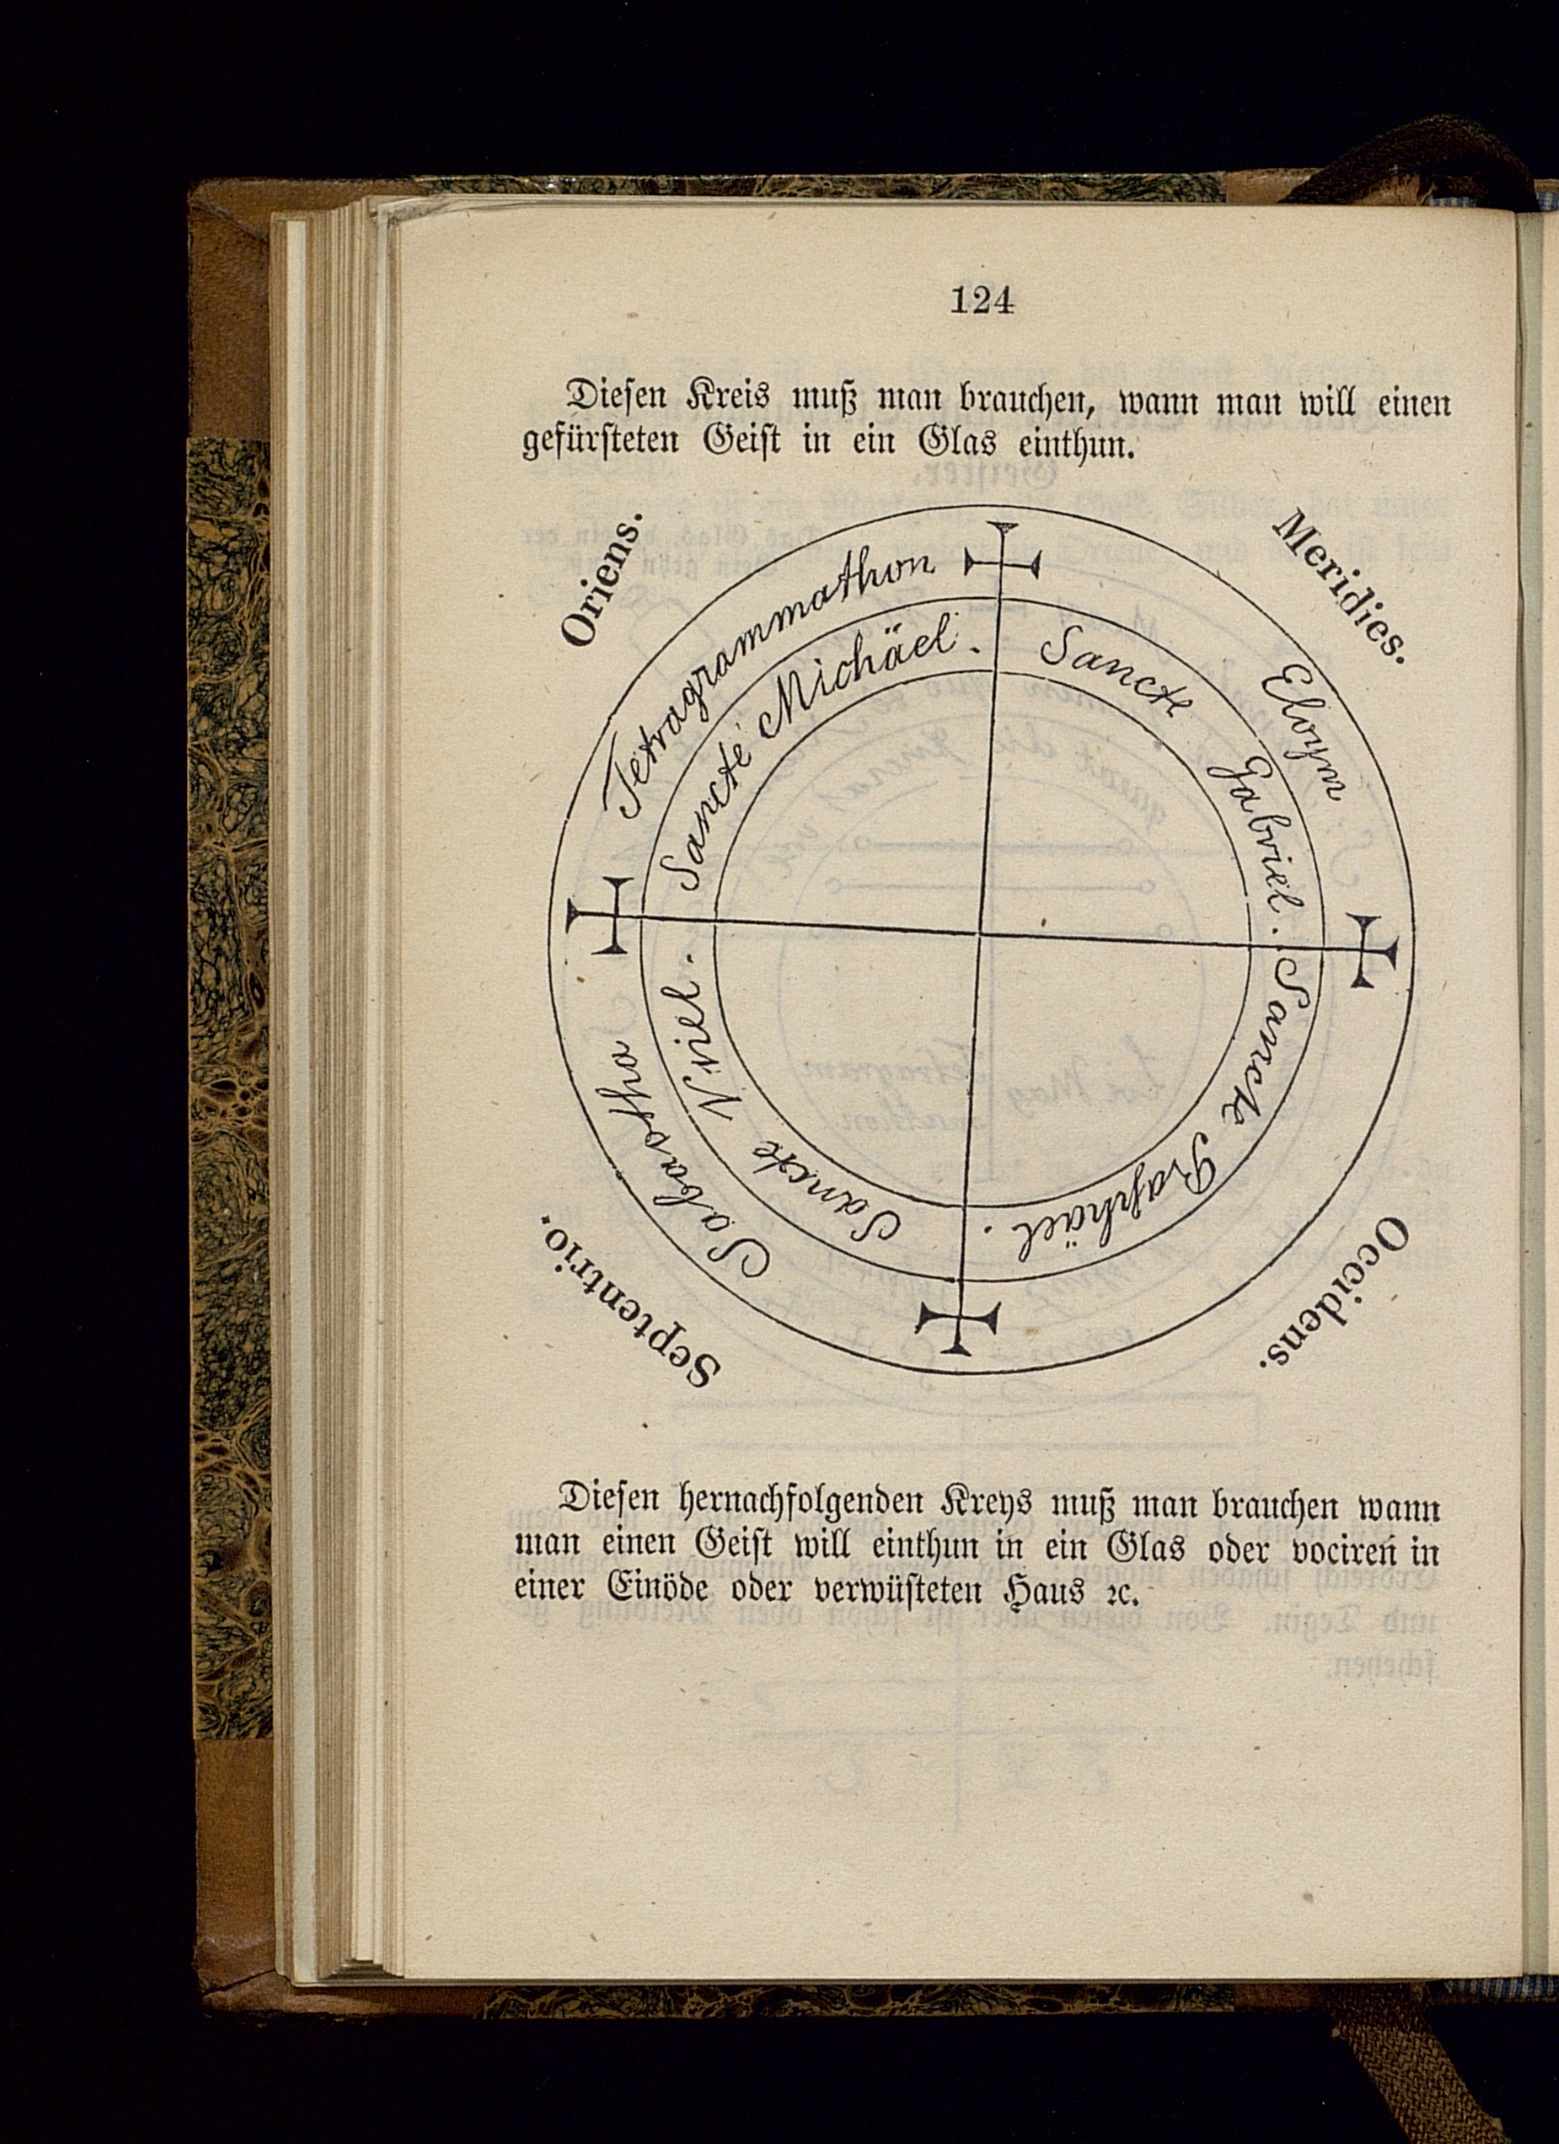 124
Diesen Kreis muß man brauchen, wann man will einen
gefürsteten Geist in ein Glas einthun.
Oriens.
Meridies.
Tetragrammathon
Eloym
Sancte Michäel.
Sancte Gabriel.
Sancte Raphäel.
Sancte Vriel.
Sabaotha
Septentrio.
Occidens.
Diesen hernachfolgenden Kreys muß man brauchen wann
man einen Geist will einthun in ein Glas oder vociren in
einer Einöde oder verwüsteten Haus ꝛc.